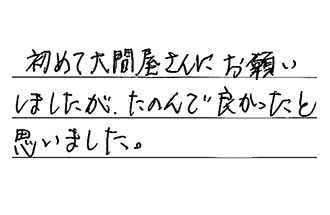 初めて大間屋さんにお願い
しましたが、たのんで良かったと
思いました。